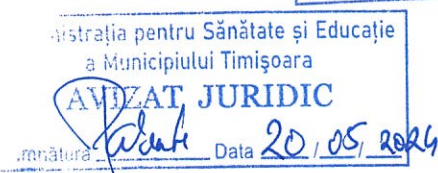 istrația pentru Sănătate și Educație
a Municipiului Timișoara
AVIZAT JURIDIC
mnătura Data 20/05/2024